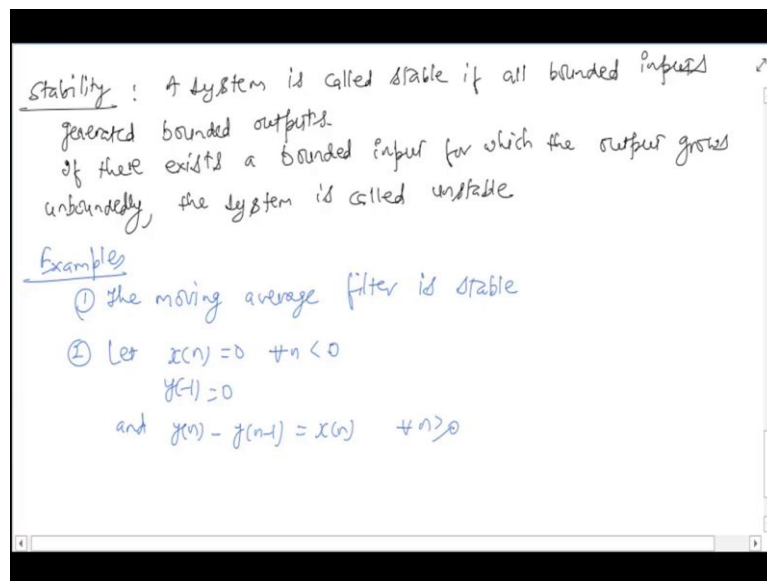 Stability : A system is called stable if all bounded inputs
generated bounded outputs.
If there exists a bounded input for which the output grows
unboundedly, the system is called unstable
Examples
① The moving average filter is stable
② Let x(n) = 0 ∀n < 0
y(-1) = 0
and y(n) - y(n-1) = x(n) ∀n ≥ 0